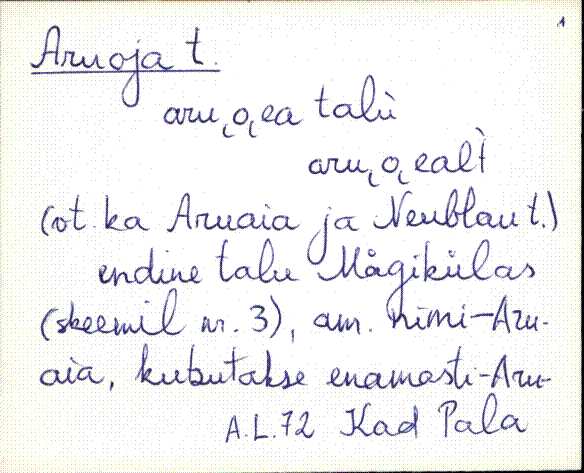 1
Aruoja t.
aru˛o˛ea talù
aru˛o˛ealt̀
(vt. ka Aruaia ja Neublau t.)
endine talu Mägikülas
(skeemil nr. 3), am. nimi-Aru-
aia, kutsutakse enamasti-Aru-
A.L.72 Kad Pala